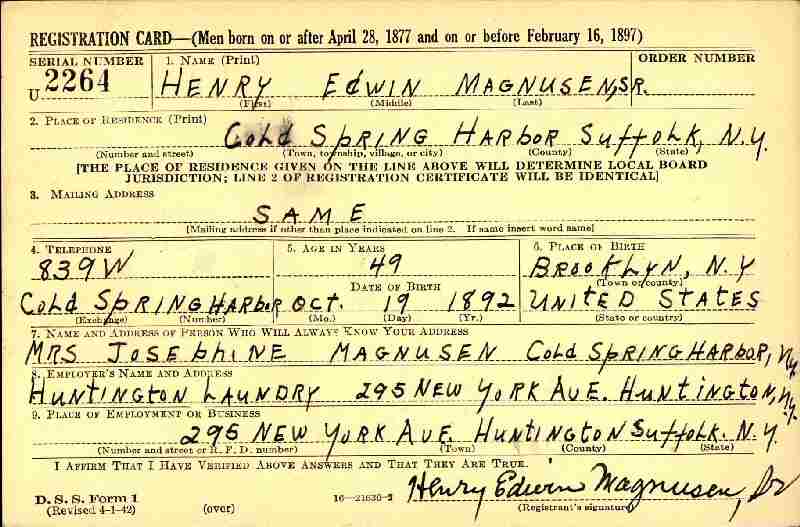 REGISTRATION CARD—(Men born on or after April 28, 1877 and on or before February 16, 1897)
SERIAL NUMBER 1. NAME (Print) ORDER NUMBER
U 2264 HENRY EDWIN MAGNUSEN, SR.
(First) (Middle) (Last)
2. PLACE OF RESIDENCE (Print)
COLD SPRING HARBOR SUFFOLK, N.Y.
(Number and street) (Town, township, village, or city) (County) (State)
[THE PLACE OF RESIDENCE GIVEN ON THE LINE ABOVE WILL DETERMINE LOCAL BOARD
JURISDICTION; LINE 2 OF REGISTRATION CERTIFICATE WILL BE IDENTICAL]
3. MAILING ADDRESS
SAME
[Mailing address if other than place indicated on line 2. If same insert word same]
4. TELEPHONE 5. AGE IN YEARS 6. PLACE OF BIRTH
839W 49 BROOKLYN, N.Y
DATE OF BIRTH (Town or county)
COLD SPRING HARBOR OCT. 19 1892 UNITED STATES
(Exchange) (Number) (Mo.) (Day) (Yr.) (State or country)
7. NAME AND ADDRESS OF PERSON WHO WILL ALWAYS KNOW YOUR ADDRESS
MRS JOSEPHINE MAGNUSEN COLD SPRING HARBOR, N.Y.
8. EMPLOYER'S NAME AND ADDRESS
HUNTINGTON LAUNDRY 295 NEW YORK AVE. HUNTINGTON, N.Y.
9. PLACE OF EMPLOYMENT OR BUSINESS
295 NEW YORK AVE. HUNTINGTON SUFFOLK. N.Y.
(Number and street or R. F. D. number) (Town) (County) (State)
I AFFIRM THAT I HAVE VERIFIED ABOVE ANSWERS AND THAT THEY ARE TRUE.
D. S. S. Form 1 16—21630-2 Henry Edwin Magnusen, Sr
(Revised 4-1-42) (over) (Registrant's signature)